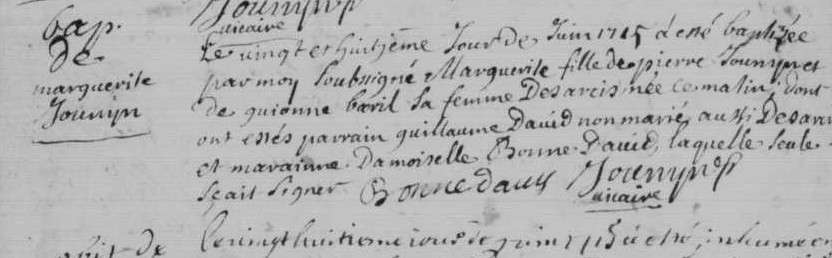 Jounyn p
vicaire
bap.
de
marguerite
Jounyn
Le vingt et huitiéme Jour de Juin 1715 à esté baptizée
par moy Soubsigné Marguerite fille de pierre Jounyn et
de guionne baril Sa femme Desarcis née ce matin; dont
ont estés parrain guillaume David non marié aussi Desarcis
et maraînne Damoiselle Bonne David, laquelle seule
Sçait signer Bonne david Jounyn p
vicaire
de
Le vingt huitieme jour de juin 1715 à esté inhumée